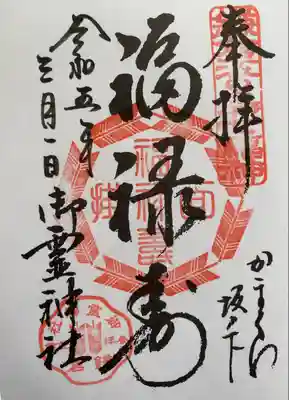 奉拝
かまくら
坂ノ下
福禄寿
令和五年
三月一日
御霊神社